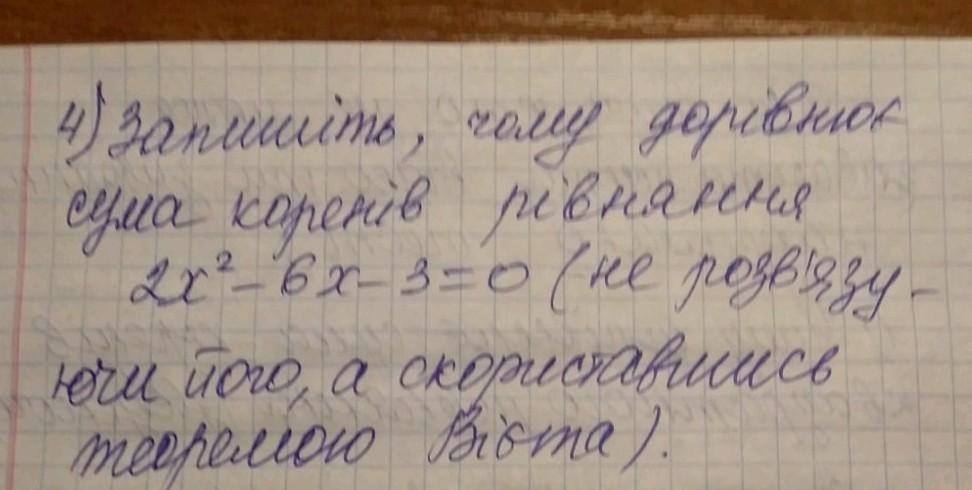 4) Запишіть, чому дорівнює
сума коренів рівняння
2x² - 6x - 3 = 0 (не розв'язу-
ючи його, а скориставшись
теоремою Вієта).